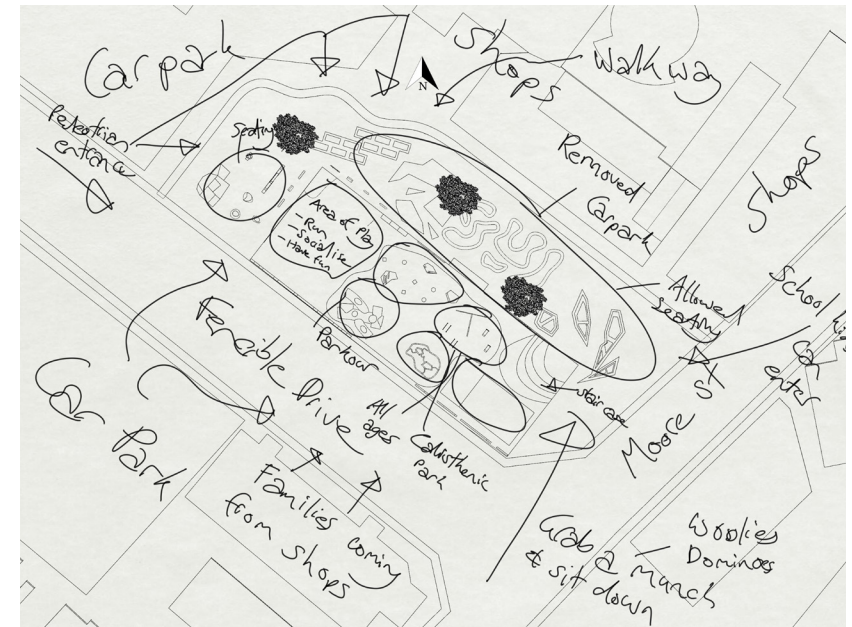 Carpark
Shops
Walkway
N
Pedestrian
entrance
Seating
Removed
Carpark
Shops
Area of Play
- Run
- Socialise
- Have fun
Allowed
seating
School
enter
Fencible Drive
Parkour
All
ages
Calisthenic
Park
stair case
Moore St
Car Park
Families coming
from shops
Grab a munch
& sit down
Woolies
Dominoes